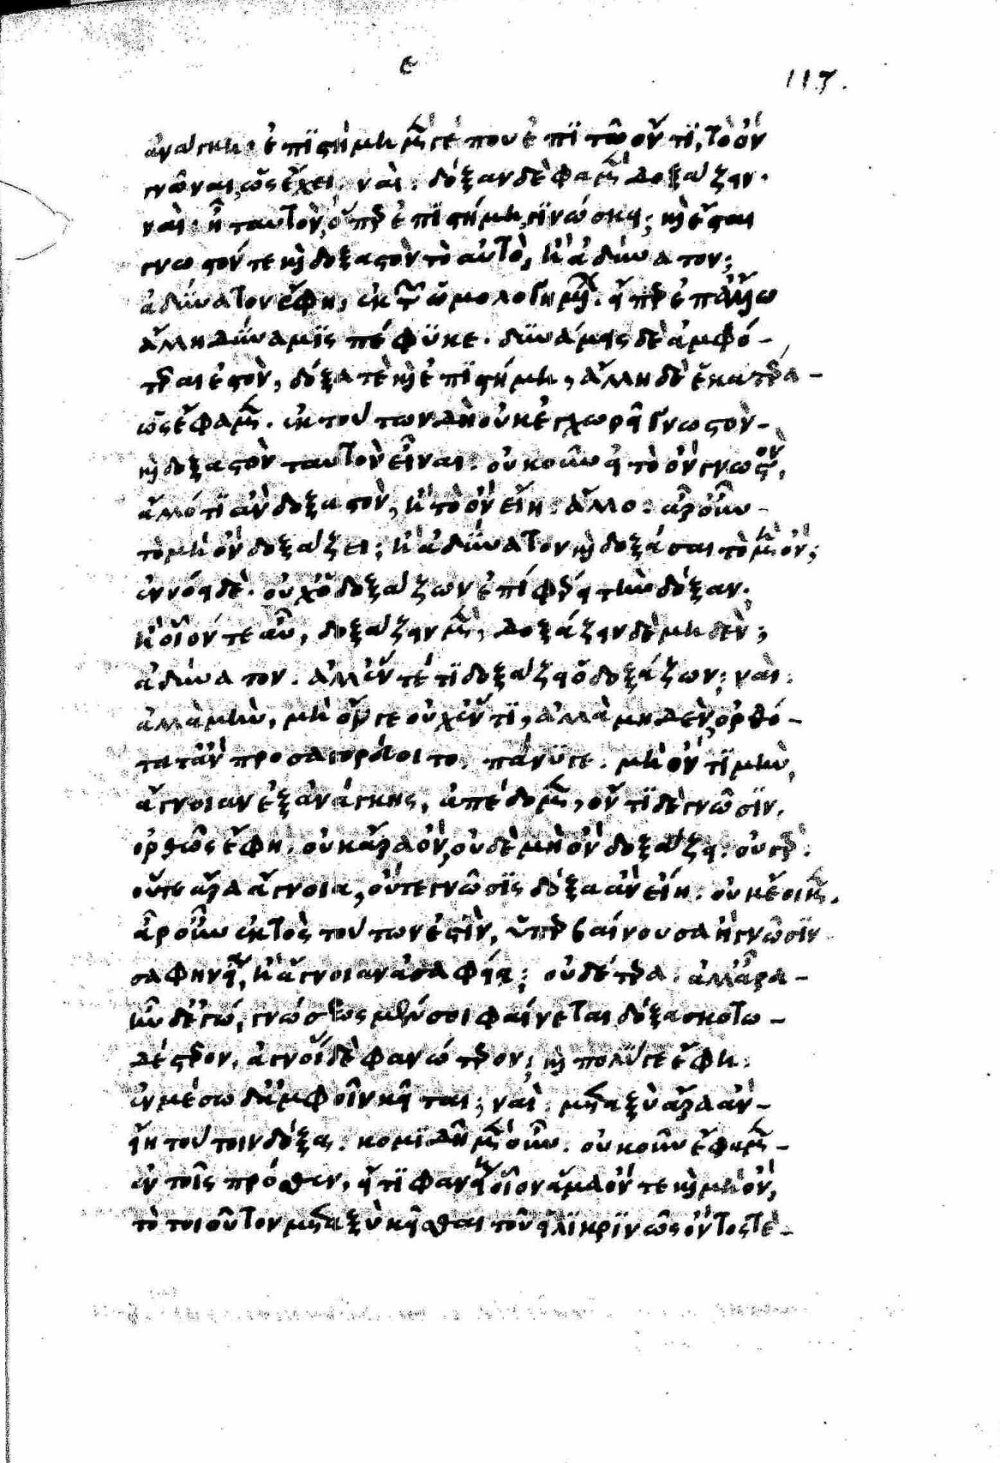 ε
113.
ἀνάγκη. ἐπιστήμη μέν γέ που ἐπὶ τῶ ὄντι, τὸ ὂν
γνῶναι, ὡς ἔχει. ναί. δόξαν δέ φαμεν δοξάζειν.
ναί. ἢ ταυτὸν, ὅπερ ἐπιστήμη γινώσκει; καὶ ἔσται
γνωστόν τε καὶ δοξαστὸν τὸ αὐτὸ, ἢ ἀδύνατον;
ἀδύνατον ἔφη, ἐκ τῶν ὡμολογημένων. εἴπερ ἐπ' ἄλλω
ἄλλη δύναμις πέφυκε. δυνάμεις δὲ ἀμφό-
τεραι ἐστὸν, δόξα τὲ καὶ ἐπιστήμη, ἄλλη δὲ ἑκατέρα -
ὥς ἔφαμεν. ἐκ τούτων δὴ οὐκ ἐγχωρεῖ γνωστὸν -
καὶ δοξαστὸν ταυτὸν εἶναι. οὐκοῦν εἰ τὸ ὂν γνωστὸν,
ἄλλό τι ἂν δοξαστὸν, ἢ τὸ ὂν εἴη. ἄλλο. ἆρ' οὖν -
τὸ μὴ ὂν δοξάζει; ἢ ἀδύνατον καὶ δοξάσαι τὸ μὴ ὄν;
ἐννόει δέ. οὐχ ὁ δοξάζων ἐπί τι φέρει τὴν δόξαν.
ἢ οἷόν τε αὖ, δοξάζειν μὲν, δοξάζειν δὲ μηδέν;
ἀδύνατον. ἀλλ' ἕν γέ τι δοξάζει ὁ δοξάζων; ναί.
ἀλλὰ μὴν, μὴ ὄν γε οὐχ ἕν τι, ἀλλὰ μηδὲν, ὀρθό-
τατ' ἂν προσαγορεύοιτο. πάνυ γε. μὴ ὄντι μὴν,
ἄγνοιαν ἐξ ἀνάγκης, ἀπέδομεν, ὄντι δὲ γνῶσιν.
ὀρθῶς ἔφη. οὐκ ἄρα ὂν, οὐδὲ μὴ ὂν δοξάζει. οὐ γάρ.
οὔτε ἄρα ἄγνοια, οὔτε γνῶσις δόξα ἂν εἴη. οὐκ ἔοικεν.
ἆρ' οὖν ἐκτὸς τούτων ἐστὶν, ὑπερβαίνουσα ἢ γνῶσιν
σαφηνεία, ἢ ἄγνοιαν ἀσαφεία; οὐδέτερα. ἀλλ' ἆρα -
ἦν δ' ἐγώ, γνώσεως μέν σοι φαίνεται δόξα σκοτω-
δέστερον, ἀγνοίας δὲ φανώτερον; καὶ πολύ γε ἔφη.
ἐν μέσω δ' ἀμφοῖν κεῖται; ναί. μεταξὺ ἄρα ἂν -
εἴη τούτοιν δόξα. κομιδῆ μὲν οὖν. οὐκοῦν ἔφαμεν -
ἐν τοῖς πρόσθεν, εἴ τι φανείη οἷον ἅμα ὄν τε καὶ μὴ ὂν,
τὸ τοιοῦτον μεταξὺ κεῖσθαι τοῦ εἰλικρινῶς ὄντος τὲ -